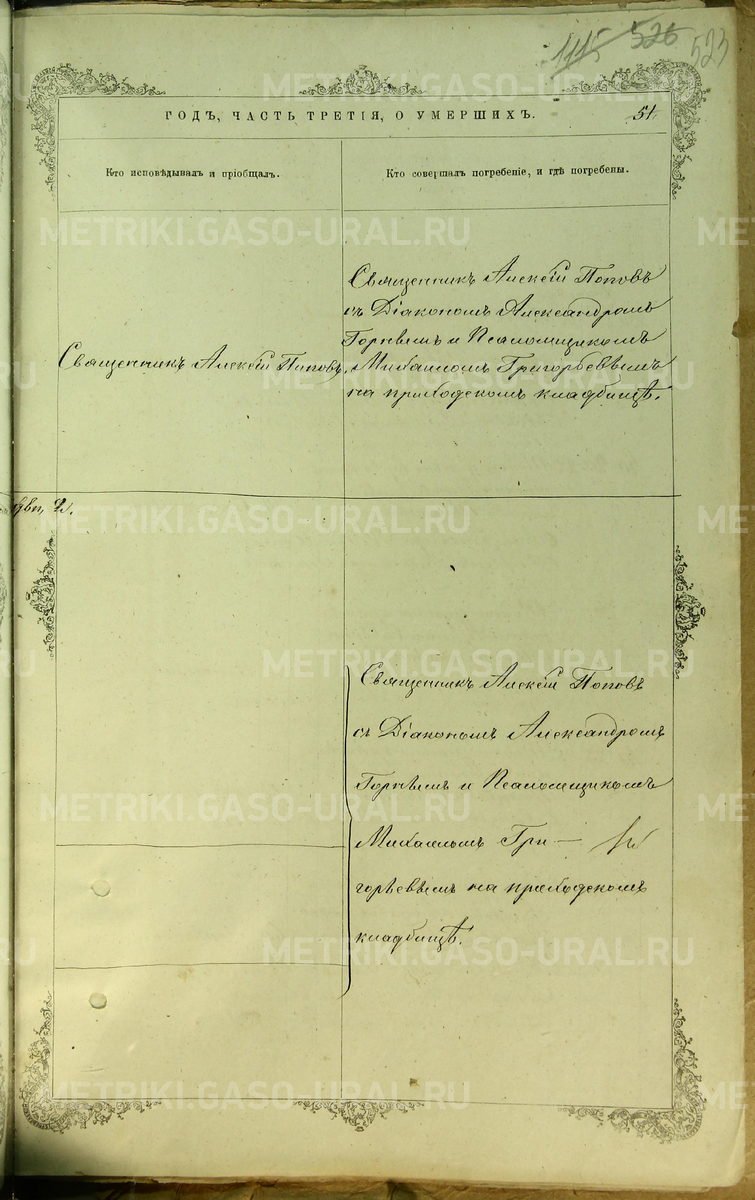 1115 526 523
ГОДЪ, ЧАСТЬ ТРЕТІЯ, О УМЕРШИХЪ.
51
Кто исповѣдывалъ и пріобщалъ.
Кто совершалъ погребеніе, и гдѣ погребены.
Священникъ Алексій Поповъ.
Священникъ Алексій Поповъ
съ Діакономъ Александромъ
Горнымъ и Псаломщикомъ
Михаиломъ Григорьевымъ
на приходскомъ кладбищѣ.
Священникъ Алексій Поповъ
съ Діакономъ Александромъ
Горнымъ и Псаломщикомъ
Михаиломъ Гри-
горьевымъ на приходскомъ
кладбищѣ.
METRIKI.GASO-URAL.RU